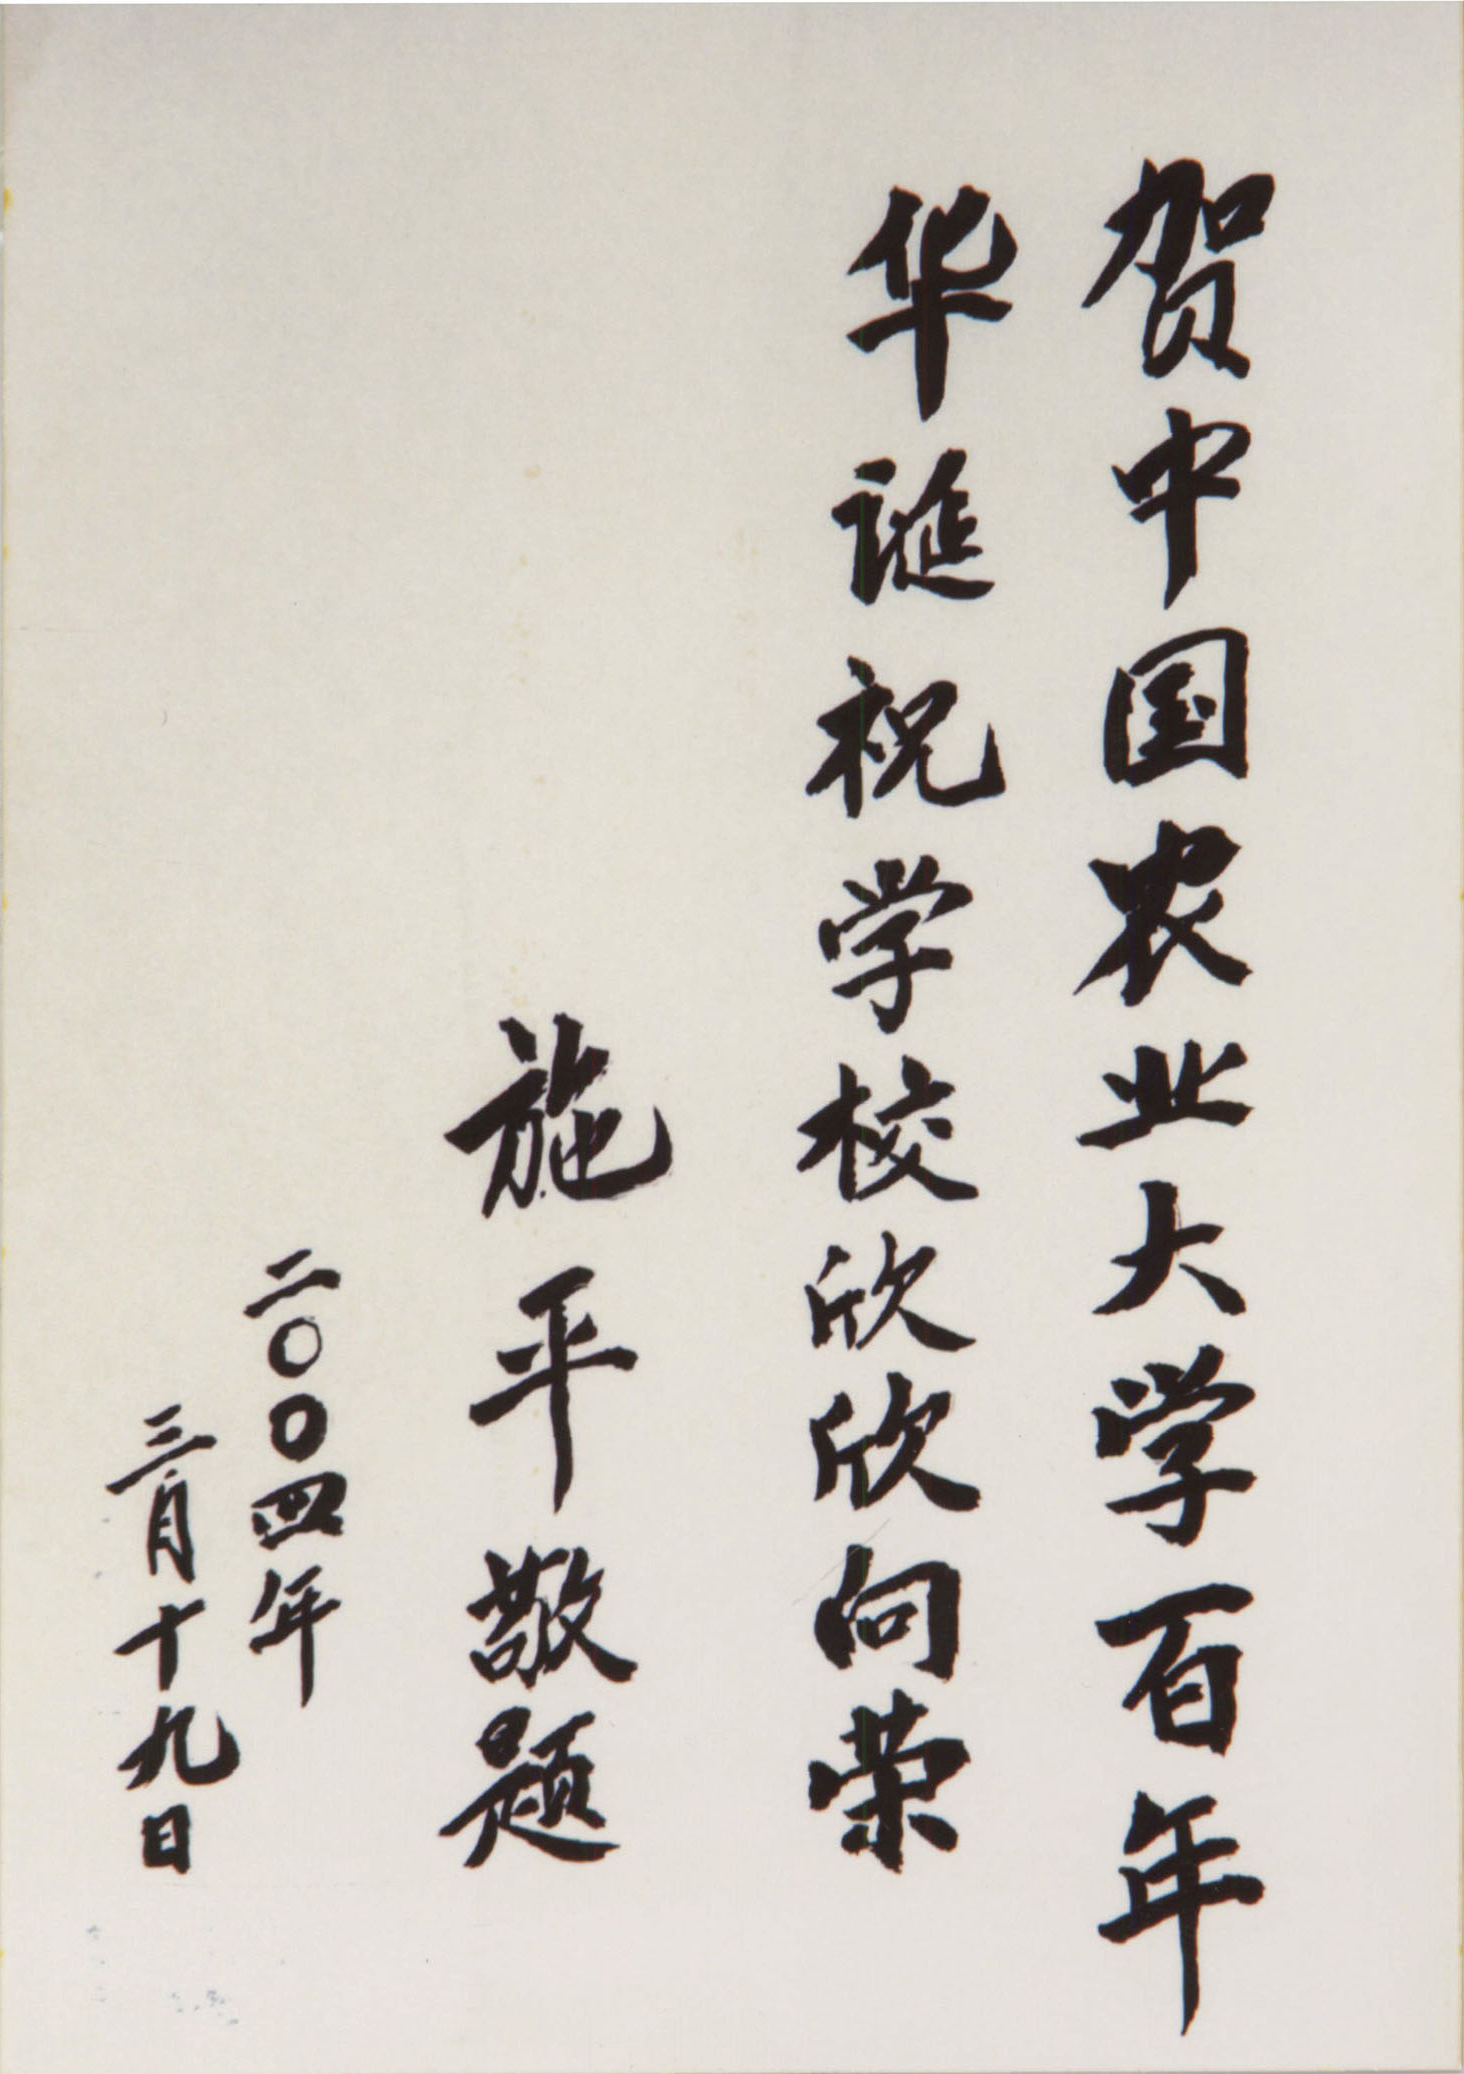 贺中国农业大学百年
华诞祝学校欣欣向荣
施平敬题
二〇〇四年
三月十九日